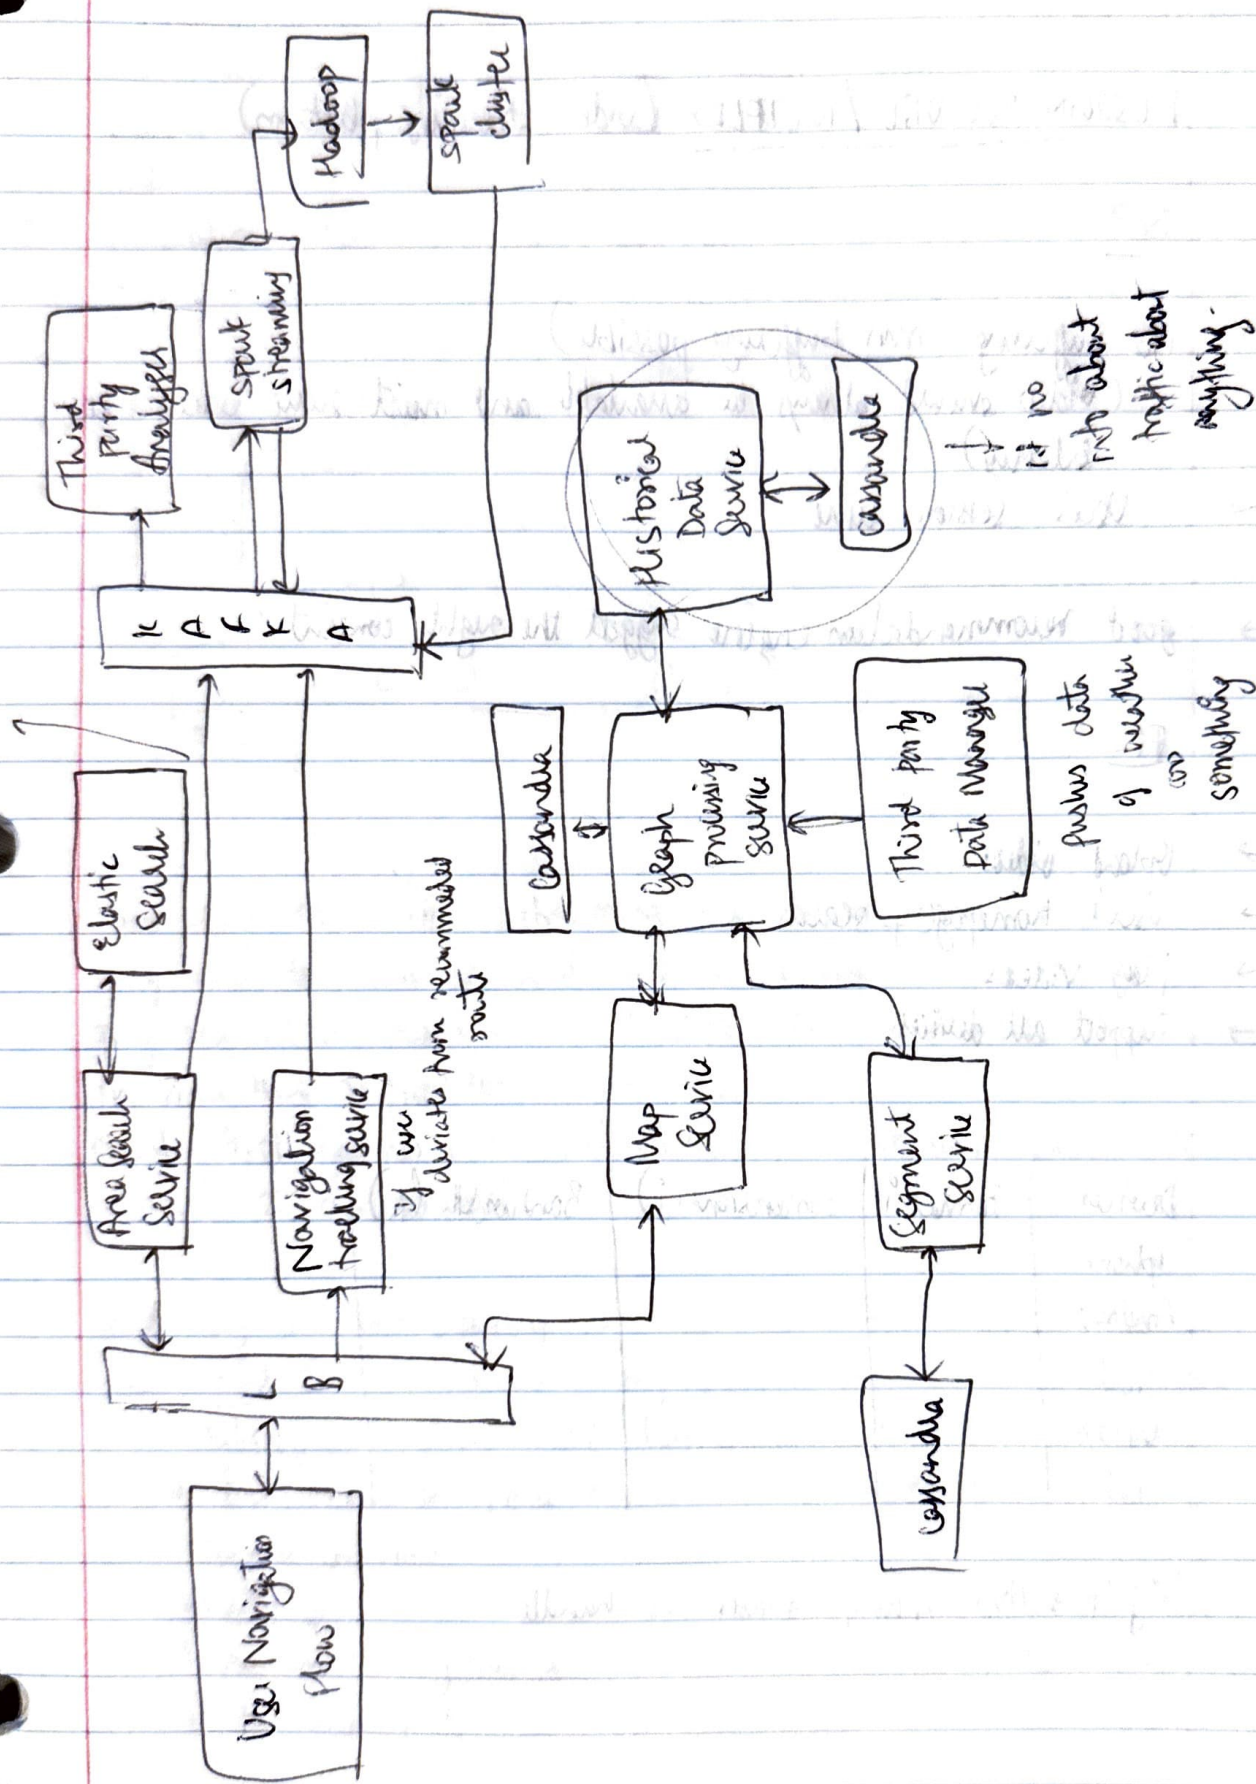 User Navigation
flow
L
B
Area Search
Service
Elastic
Search
Navigation
tracking service
if user
deviates from recommended
route
K
A
F
K
A
Third
party
Analyses
Spark
streaming
Hadoop
Spark
cluster
Map
Service
Cassandra
Graph
processing
service
Historical
Data
Service
Cassandra
it no
info about
traffic about
anything.
Third party
Data Manager
pushes data
of weather
or
something
Segment
Service
Cassandra